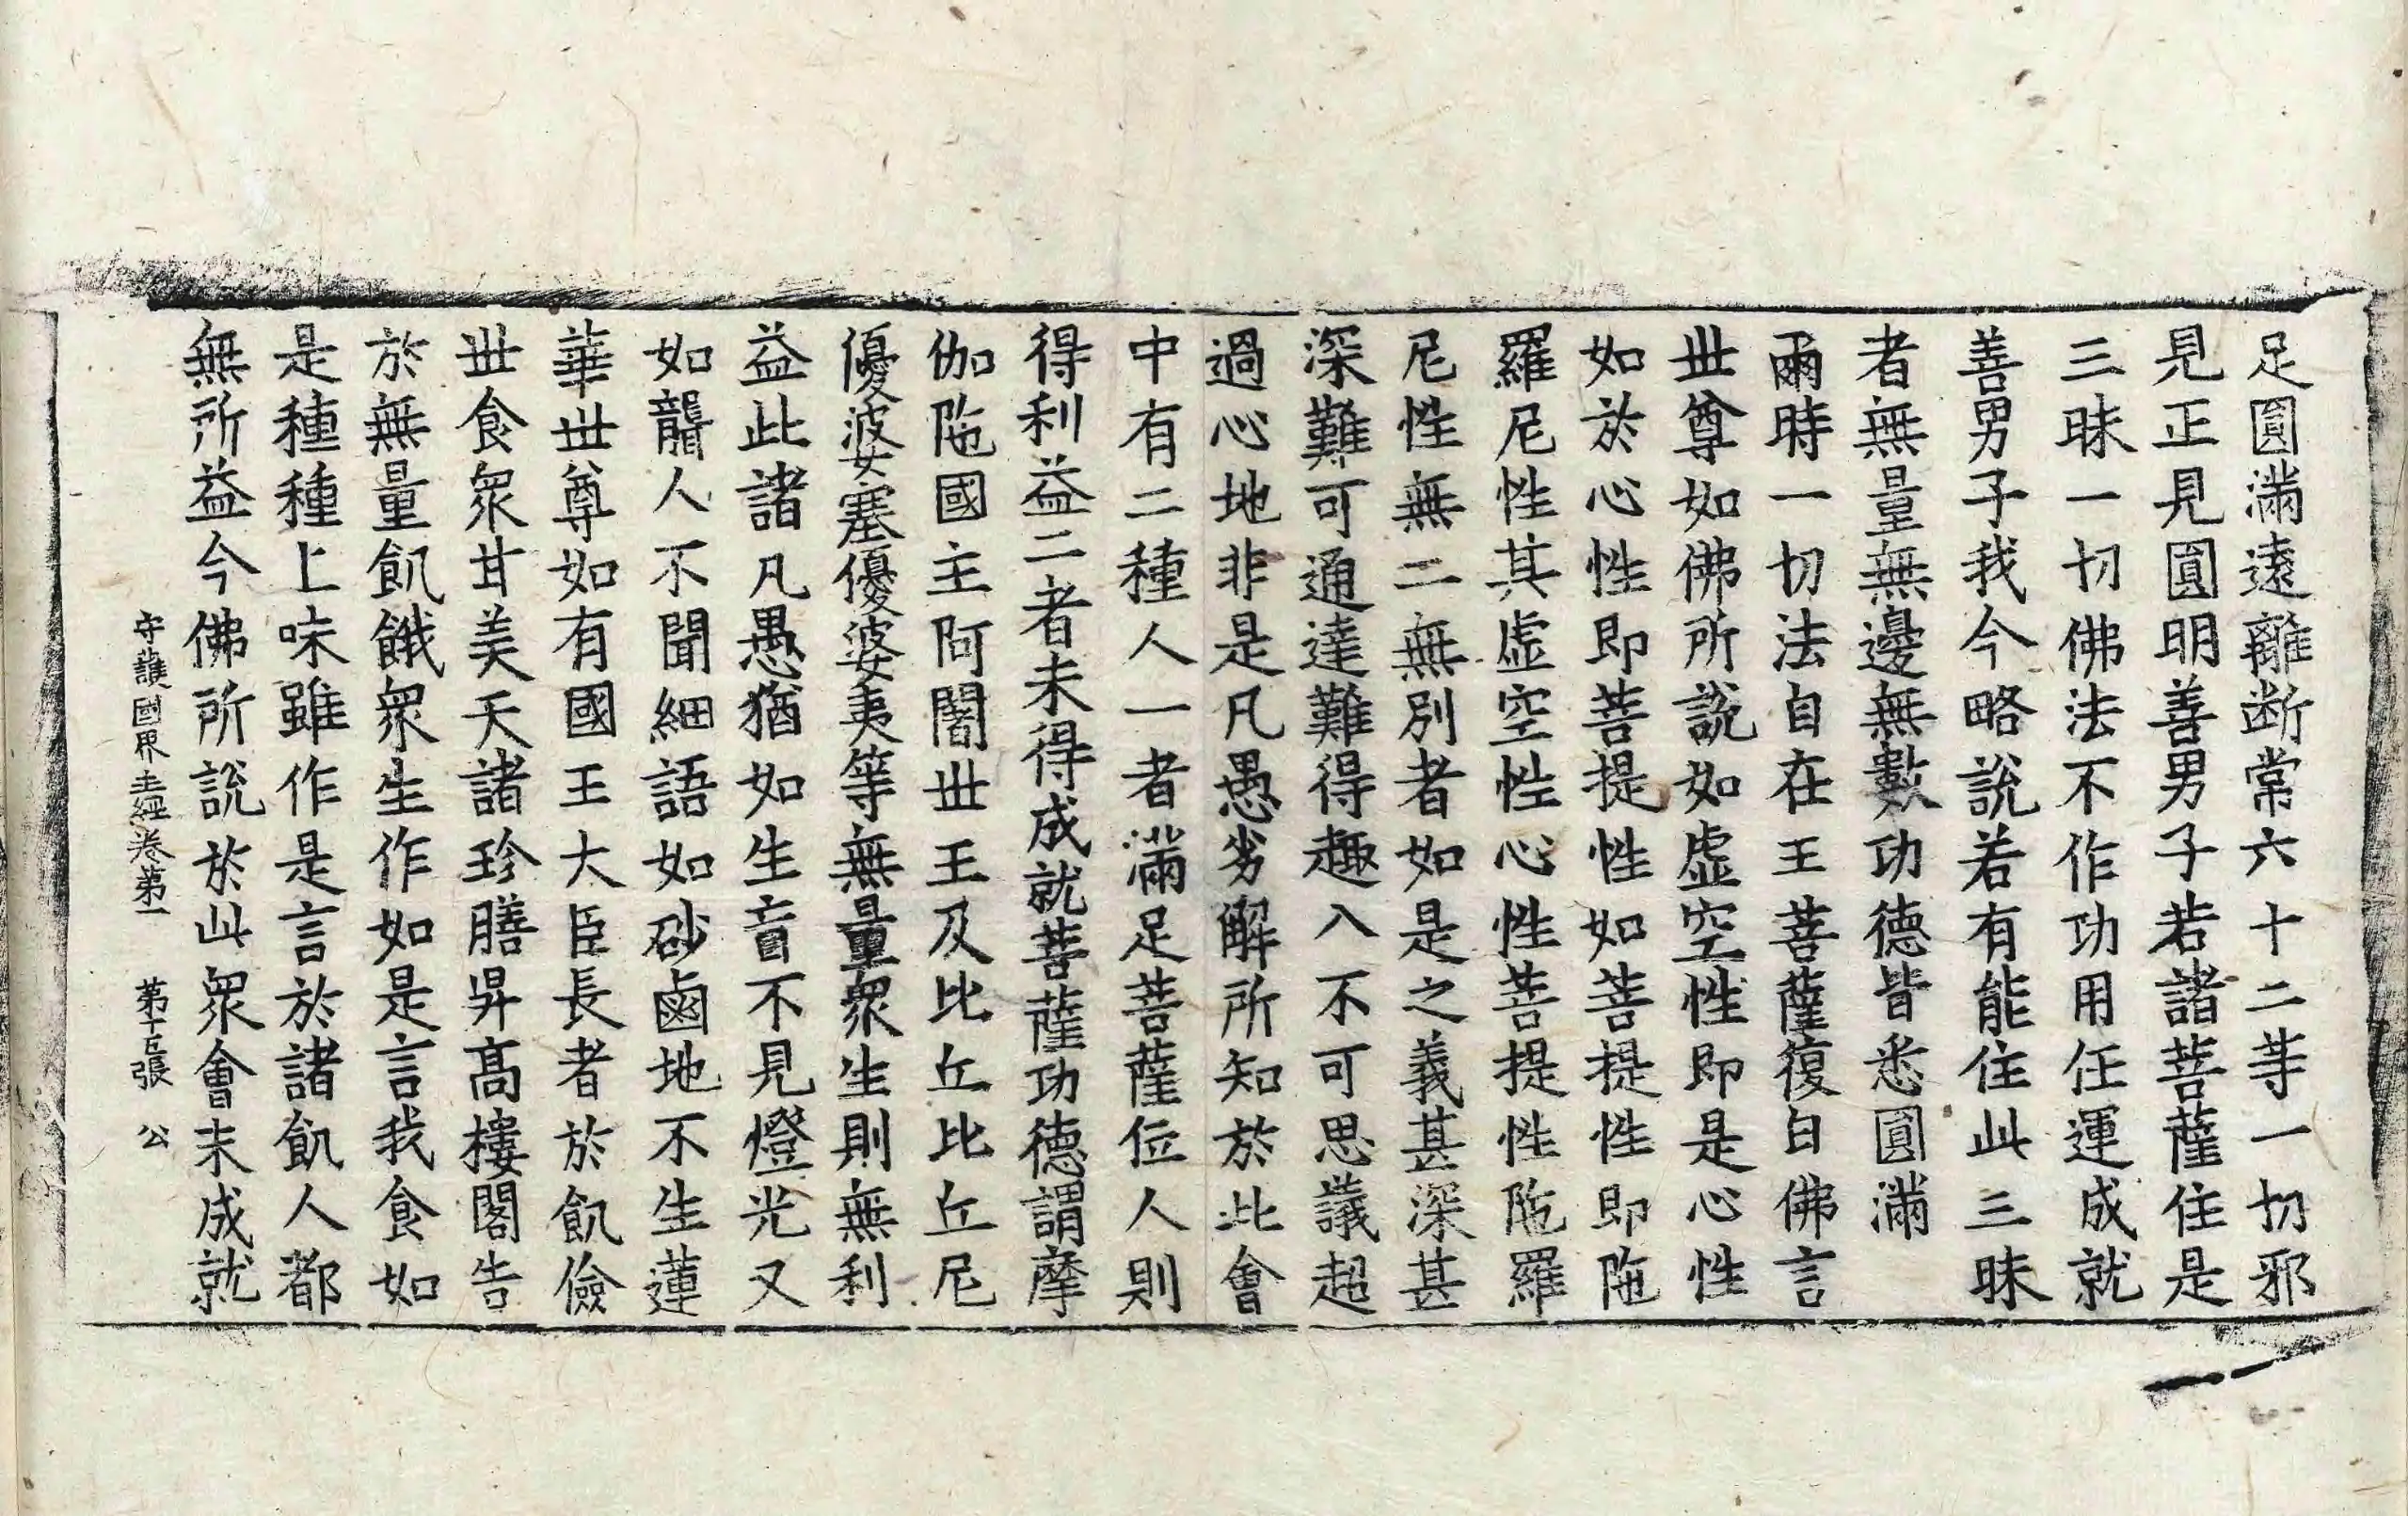 足圓滿遠離断常六十二等一切邪
見正見圓明善男子若諸菩薩住是
三昧一切佛法不作功用任運成就
善男子我今略說若有能住此三昧
者無量無邊無數功德皆悉圓滿
爾時一切法自在王菩薩復白佛言
世尊如佛所說如虛空性即是心性
如於心性即菩提性如菩提性即陁
羅尼性其虛空性心性菩提性陁羅
尼性無二無別者如是之義甚深甚
深難可通達難得趣入不可思議超
過心地非是凡愚劣解所知於此會
中有二種人一者滿足菩薩位人則
得利益二者未得成就菩薩功德謂摩
伽陁國主阿闍世王及比丘比丘尼
優婆塞優婆夷等無量眾生則無利
益此諸凡愚猶如生盲不見燈光又
如聾人不聞細語如砂鹵地不生蓮
華世尊如有國王大臣長者於飢儉
世食眾甘美天諸珍膳昇高樓閣告
於無量飢餓眾生作如是言我食如
是種種上味雖作是言於諸飢人都
無所益今佛所說於此眾會未成就
守護國界主經卷第一 第十五張 公